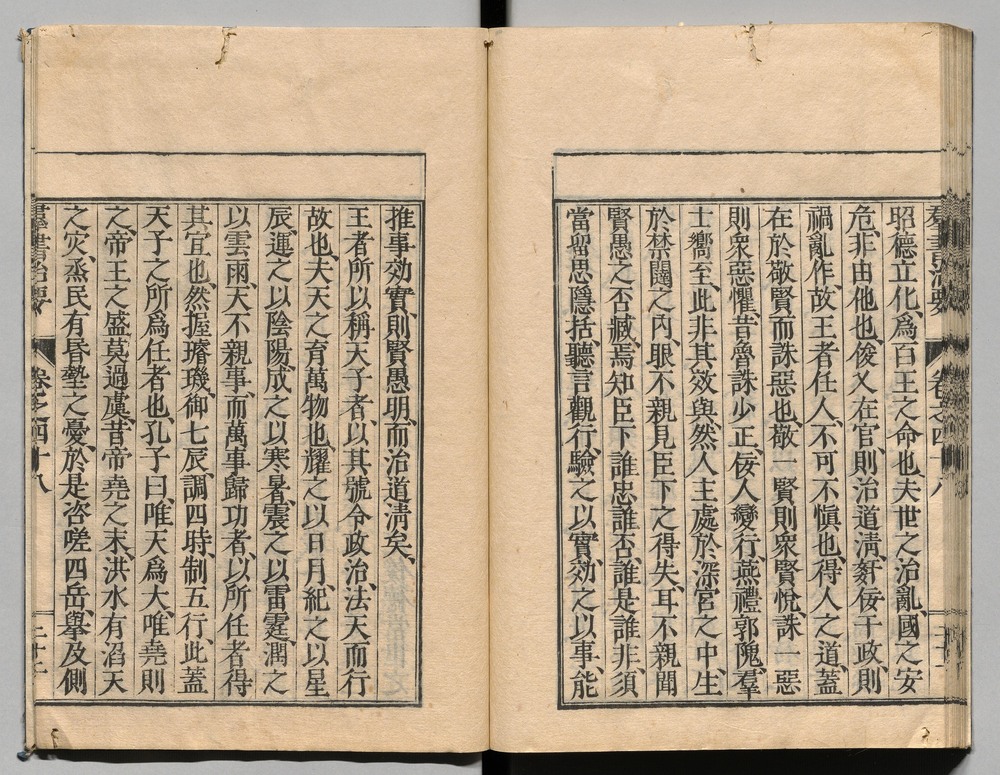 羣書治要 卷之四十八
昭德立化、爲百王之命也、夫世之治亂、國之安
危、非由他也、俊乂在官、則治道淸、奸佞干政、則
禍亂作、故王者任人、不可不愼也、得人之道、蓋
在於敬賢而誅惡也、敬一賢則衆賢悅、誅一惡
則衆惡懼、昔魯誅少正、佞人變行、燕禮郭隗、羣
士嚮至、此非其效與、然人主處於深宮之中、生
於禁闥之內、眼不親見臣下之得失、耳不親聞
賢愚之否臧、焉知臣下誰忠誰否、誰是誰非、須
當留思隱括、聽言觀行、驗之以實、効之以事、能
推事効實、則賢愚明、而治道淸矣、
王者所以稱天子者、以其號令政治、法天而行
故也、夫天之育萬物也、耀之以日月、紀之以星
辰、運之以陰陽、成之以寒暑、震之以雷霆、潤之
以雲雨、天不親事、而萬事歸功者、以所任者得
其宜也、然握璿璣、御七辰、調四時、制五行、此蓋
天子之所爲任者也、孔子曰、唯天爲大、唯堯則
之、帝王之盛莫過虞、昔帝堯之末、洪水有滔天
之災、烝民有昏墊之憂、於是咨嗟四岳、擧及側
羣書治要 卷之四十八